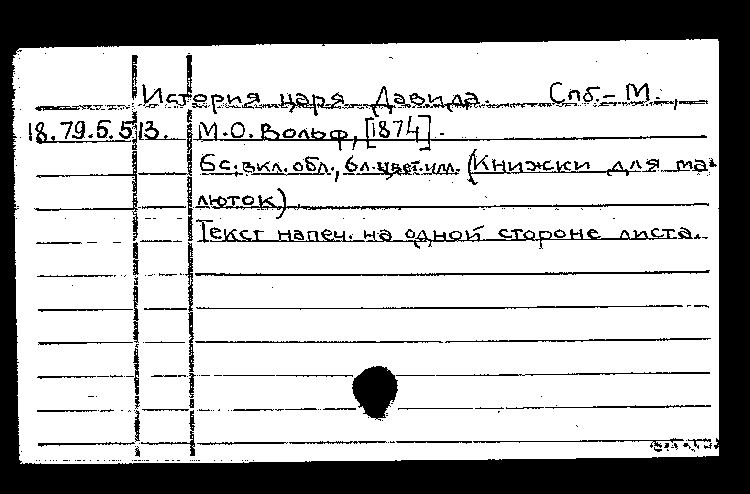 История царя Давида. Спб.-М.,
18.79.5.513. М.О.Вольф, [1874].
6с.,вкл.обл., 6л.цвет.илл. (Книжки для ма-
люток)
Текст напеч. на одной стороне листа.